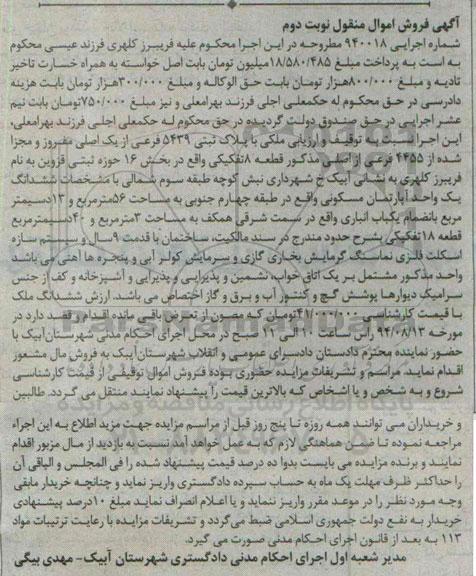 آگهی فروش اموال منقول نوبت دوم
شماره اجرایی ۹۴۰۰۱۸ مطروحه در این اجرا محکوم علیه فریبرز کلهری فرزند عیسی محکوم
به است به پرداخت مبلغ ۱۸/۵۸۰/۴۸۵میلیون تومان بابت اصل خواسته به همراه خسارت تاخیر
تادیه و مبلغ ۸۰۰/۰۰۰هزار تومان بابت حق الوکاله و مبلغ ۳۰۰/۰۰۰هزار تومان بابت هزینه
دادرسی در حق محکوم له حکمعلی اجلی فرزند بهرامعلی و نیز مبلغ ۷۵۰/۰۰۰تومان بابت نیم
عشر اجرایی در حق صندوق دولت گردیده در حق محکوم له حکمعلی اجلی فرزند بهرامعلی،
این اجرا نسبت به توقیف و ارزیابی ملکی با پلاک ثبتی ۵۴۳۹ فرعی از یک اصلی مفروز و مجزا
شده از ۴۴۵۵ فرعی از اصلی مذکور قطعه ۸تفکیکی واقع در بخش ۱۶ حوزه ثبتی قزوین به نام
فریبرز کلهری به نشانی آبیک خ شهرداری نبش کوچه طبقه سوم شمالی با مشخصات ششدانگ
یک واحد آپارتمان مسکونی واقع در طبقه چهارم جنوبی به مساحت ۵۶مترمربع و ۱۳دسیمتر
مربع بانضمام یکباب انباری واقع در سمت شرقی همکف به مساحت ۳مترمربع و ۴۰دسیمترمربع
قطعه ۱۸تفکیکی بشرح حدود مندرج در سند مالکیت، ساختمان با قدمت ۹سال و سیستم سازه
اسکلت فلزی نماسنگ گرمایش بخاری گازی و سرمایش کولر آبی و پنجره ها آهنی می باشد
واحد مذکور مشتمل بر یک اتاق خواب، نشمین و پذیرایی و پذیرایی و آشپزخانه و کف از جنس
سرامیک دیوارها پوشش گچ و کنتور آب و برق و گاز اختصاص می باشد. ارزش ششدانگ ملک
با قیمت کارشناسی ۴۱/۰۰۰/۰۰۰تومان که مصون از تعرض باقی مانده اقدام و قصد دارد در
مورخه ۹۴/۰۸/۱۳ راس ساعت ۱۰ الی ۱۱ صبح در محل اجرای احکام مدنی شهرستان آبیک با
حضور نماینده محترم دادستان دادسرای عمومی و انقلاب شهرستان آبیک به فروش مال مشعور
اقدام نماید مراسم و تشریفات مزایده حضوری بوده فروش اموال توقیفی از قیمت کارشناسی
شروع و به شخص و یا اشخاص که بالاترین قیمت را پیشنهاد نمایند منتقل می گردد. طالبین
و خریداران می توانند همه روزه تا پنج روز قبل از مراسم مزایده جهت مزید اطلاع به این اجراء
مراجعه نموده تا ضمن هماهنگی لازم که به عمل خواهد آمد نسبت به بازدید از مال مزبور اقدام
نمایند و برنده مزایده می بایست بدوا ده درصد قیمت پیشنهاد شده را فی المجلس و الباقی آن
را حداکثر ظرف مهلت یک ماه به حساب سپرده دادگستری واریز نماید و چنانچه خریدار مابقی
وجه مورد نظر را در موعد مقرر واریز ننماید و یا اعلام انصراف نماید مبلغ ۱۰درصد پیشنهادی
خریدار به نفع دولت جمهوری اسلامی ضبط می گردد و تشریفات مزایده با رعایت ترتیبات مواد
۱۱۳ به بعد از قانون اجرای احکام مدنی صورت می گیرد.
مدیر شعبه اول اجرای احکام مدنی دادگستری شهرستان آبیک- مهدی بیگی